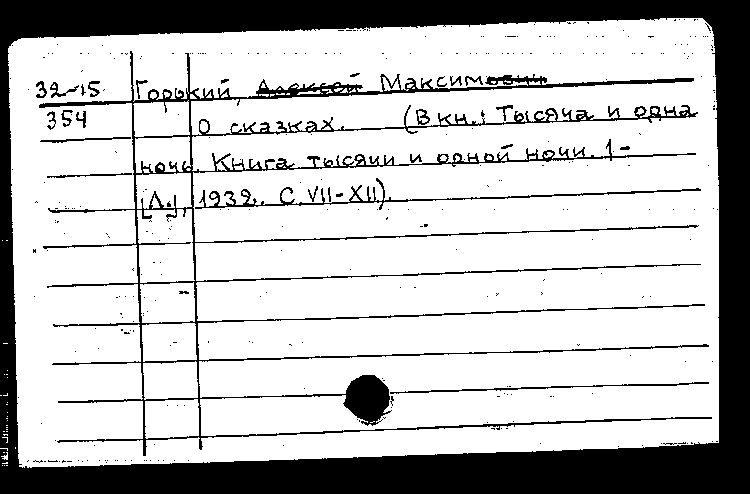 32-15 Горький, Алексей Максимович
354 О сказках. (В кн.: Тысяча и одна
ночь. Книга тысячи и одной ночи. 1-
[Л.], 1932. С. VII-XII).